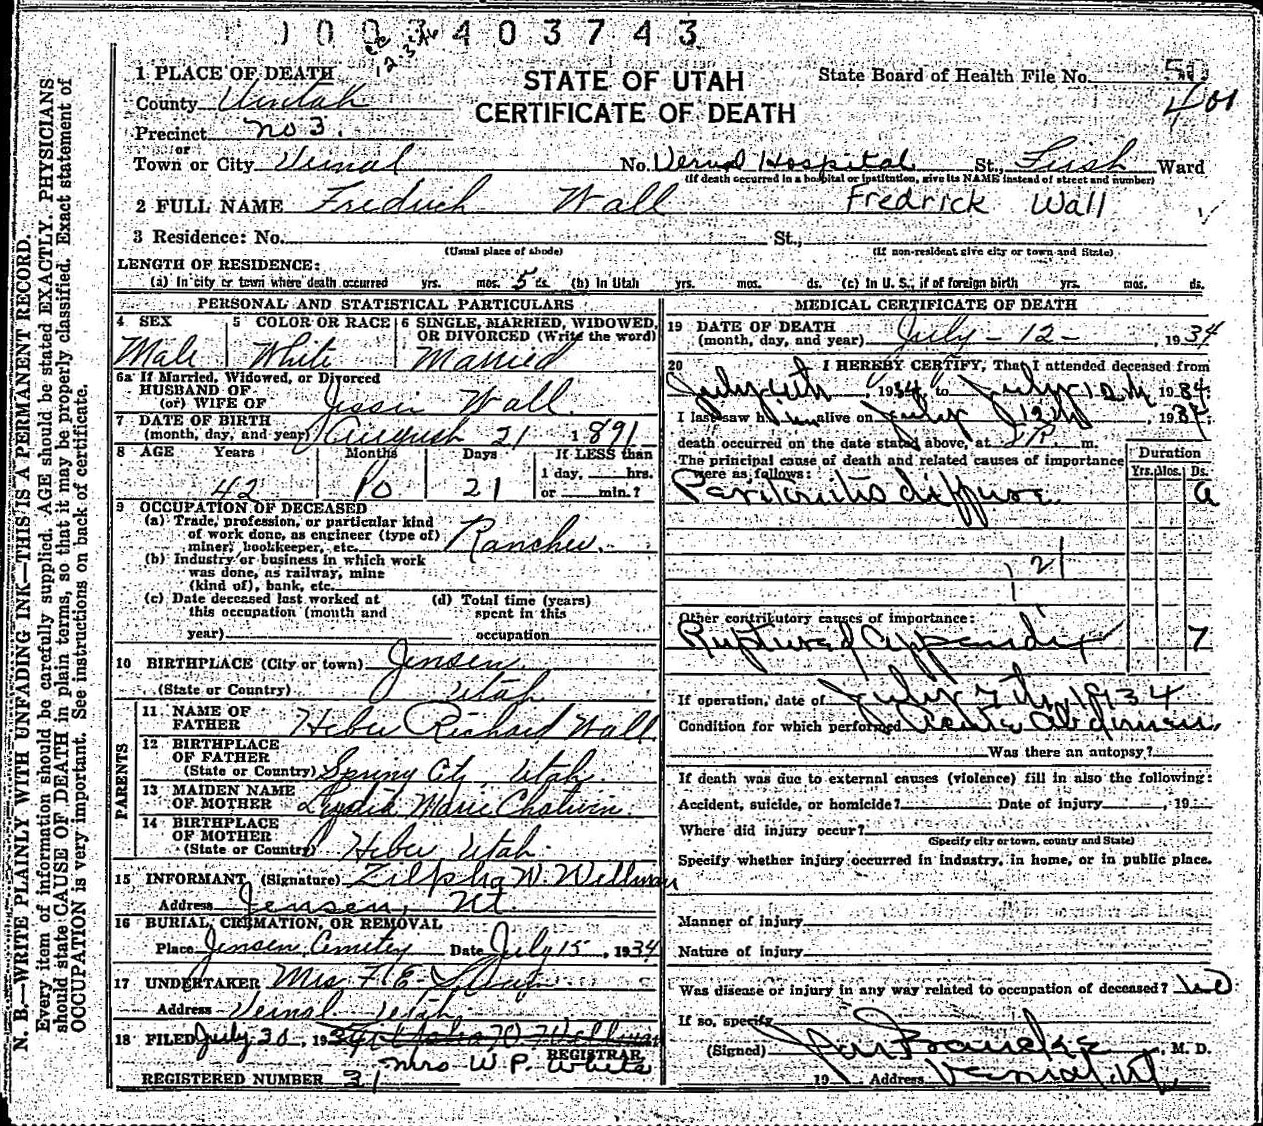 1003403743
1 PLACE OF DEATH
STATE OF UTAH
CERTIFICATE OF DEATH
State Board of Health File No. 50
401
County Uintah
Precinct No 3.
or
Town or City Vernal No. Vernal Hospital St., First Ward
(If death occurred in a hospital or institution, give its NAME instead of street and number)
2 FULL NAME Fredrich Wall Fredrick Wall
3 Residence: No. St.,
(Usual place of abode) (If non-resident give city or town and State)
LENGTH OF RESIDENCE:
(a) In city or town where death occurred yrs. mos. 5 ds. (b) In Utah yrs. mos. ds. (c) In U. S., if of foreign birth yrs. mos. ds.
PERSONAL AND STATISTICAL PARTICULARS
4 SEX Male
5 COLOR OR RACE White
6 SINGLE, MARRIED, WIDOWED, OR DIVORCED (Write the word) Married
6a If Married, Widowed, or Divorced
HUSBAND OF
(or) WIFE OF Jessie Wall
7 DATE OF BIRTH
(month, day, and year) August 21 1891
8 AGE Years 42 Months 10 Days 21
If LESS than
1 day, hrs.
or min.?
9 OCCUPATION OF DECEASED
(a) Trade, profession, or particular kind
of work done, as engineer (type of)
miner, bookkeeper, etc. Rancher.
(b) Industry or business in which work
was done, as railway, mine
(kind of), bank, etc.
(c) Date deceased last worked at
this occupation (month and
year)
(d) Total time (years)
spent in this
occupation
10 BIRTHPLACE (City or town) Jensen
(State or Country) Utah
PARENTS
11 NAME OF
FATHER Heber Richard Wall
12 BIRTHPLACE
OF FATHER
(State or Country) Spring City Utah
13 MAIDEN NAME
OF MOTHER Lydia Marie Chatwin
14 BIRTHPLACE
OF MOTHER
(State or Country) Heber Utah
15 INFORMANT (Signature) Zilpha W. Wellman
Address Jensen, Ut.
16 BURIAL, CREMATION, OR REMOVAL
Place Jensen Cemetery Date July 15, 1934
17 UNDERTAKER Mrs F. E.
Address Vernal Utah
18 FILED July 30, 1934
REGISTRAR
Mrs W P. White
REGISTERED NUMBER 31
MEDICAL CERTIFICATE OF DEATH
19 DATE OF DEATH
(month, day, and year) July - 12 - , 1934
20 I HEREBY CERTIFY, That I attended deceased from
1934, to July 12th 1934.
I last saw him alive on July 12th, 1934,
death occurred on the date stated above, at m.
The principal cause of death and related causes of importance
were as follows:
Duration
Yrs. Mos. Ds.
Peritonitis diffuse
121
Other contributory causes of importance:
Ruptured appendix 7
If operation, date of July 7th, 1934
Condition for which performed Acute Abdomen
Was there an autopsy?
If death was due to external causes (violence) fill in also the following:
Accident, suicide, or homicide? Date of injury , 19
Where did injury occur?
(Specify city or town, county and State)
Specify whether injury occurred in industry, in home, or in public place.
Manner of injury
Nature of injury
Was disease or injury in any way related to occupation of deceased? no
If so, specify
(Signed) , M. D.
19 Address Vernal, Ut.
N. B.—WRITE PLAINLY WITH UNFADING INK—THIS IS A PERMANENT RECORD.
Every item of information should be carefully supplied. AGE should be stated EXACTLY. PHYSICIANS
should state CAUSE OF DEATH in plain terms, so that it may be properly classified. Exact statement of
OCCUPATION is very important. See instructions on back of certificate.